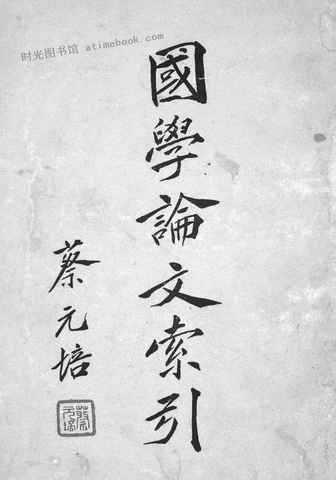 时光图书馆 atimebook.com
國學論文索引
蔡元培
蔡元培